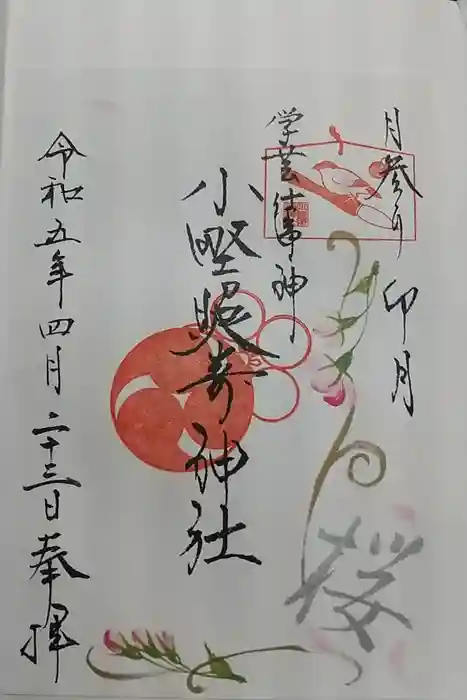 月参り 卯月
学業 仕事 神
小野照崎神社
令和五年四月二十三日 奉拝
桜